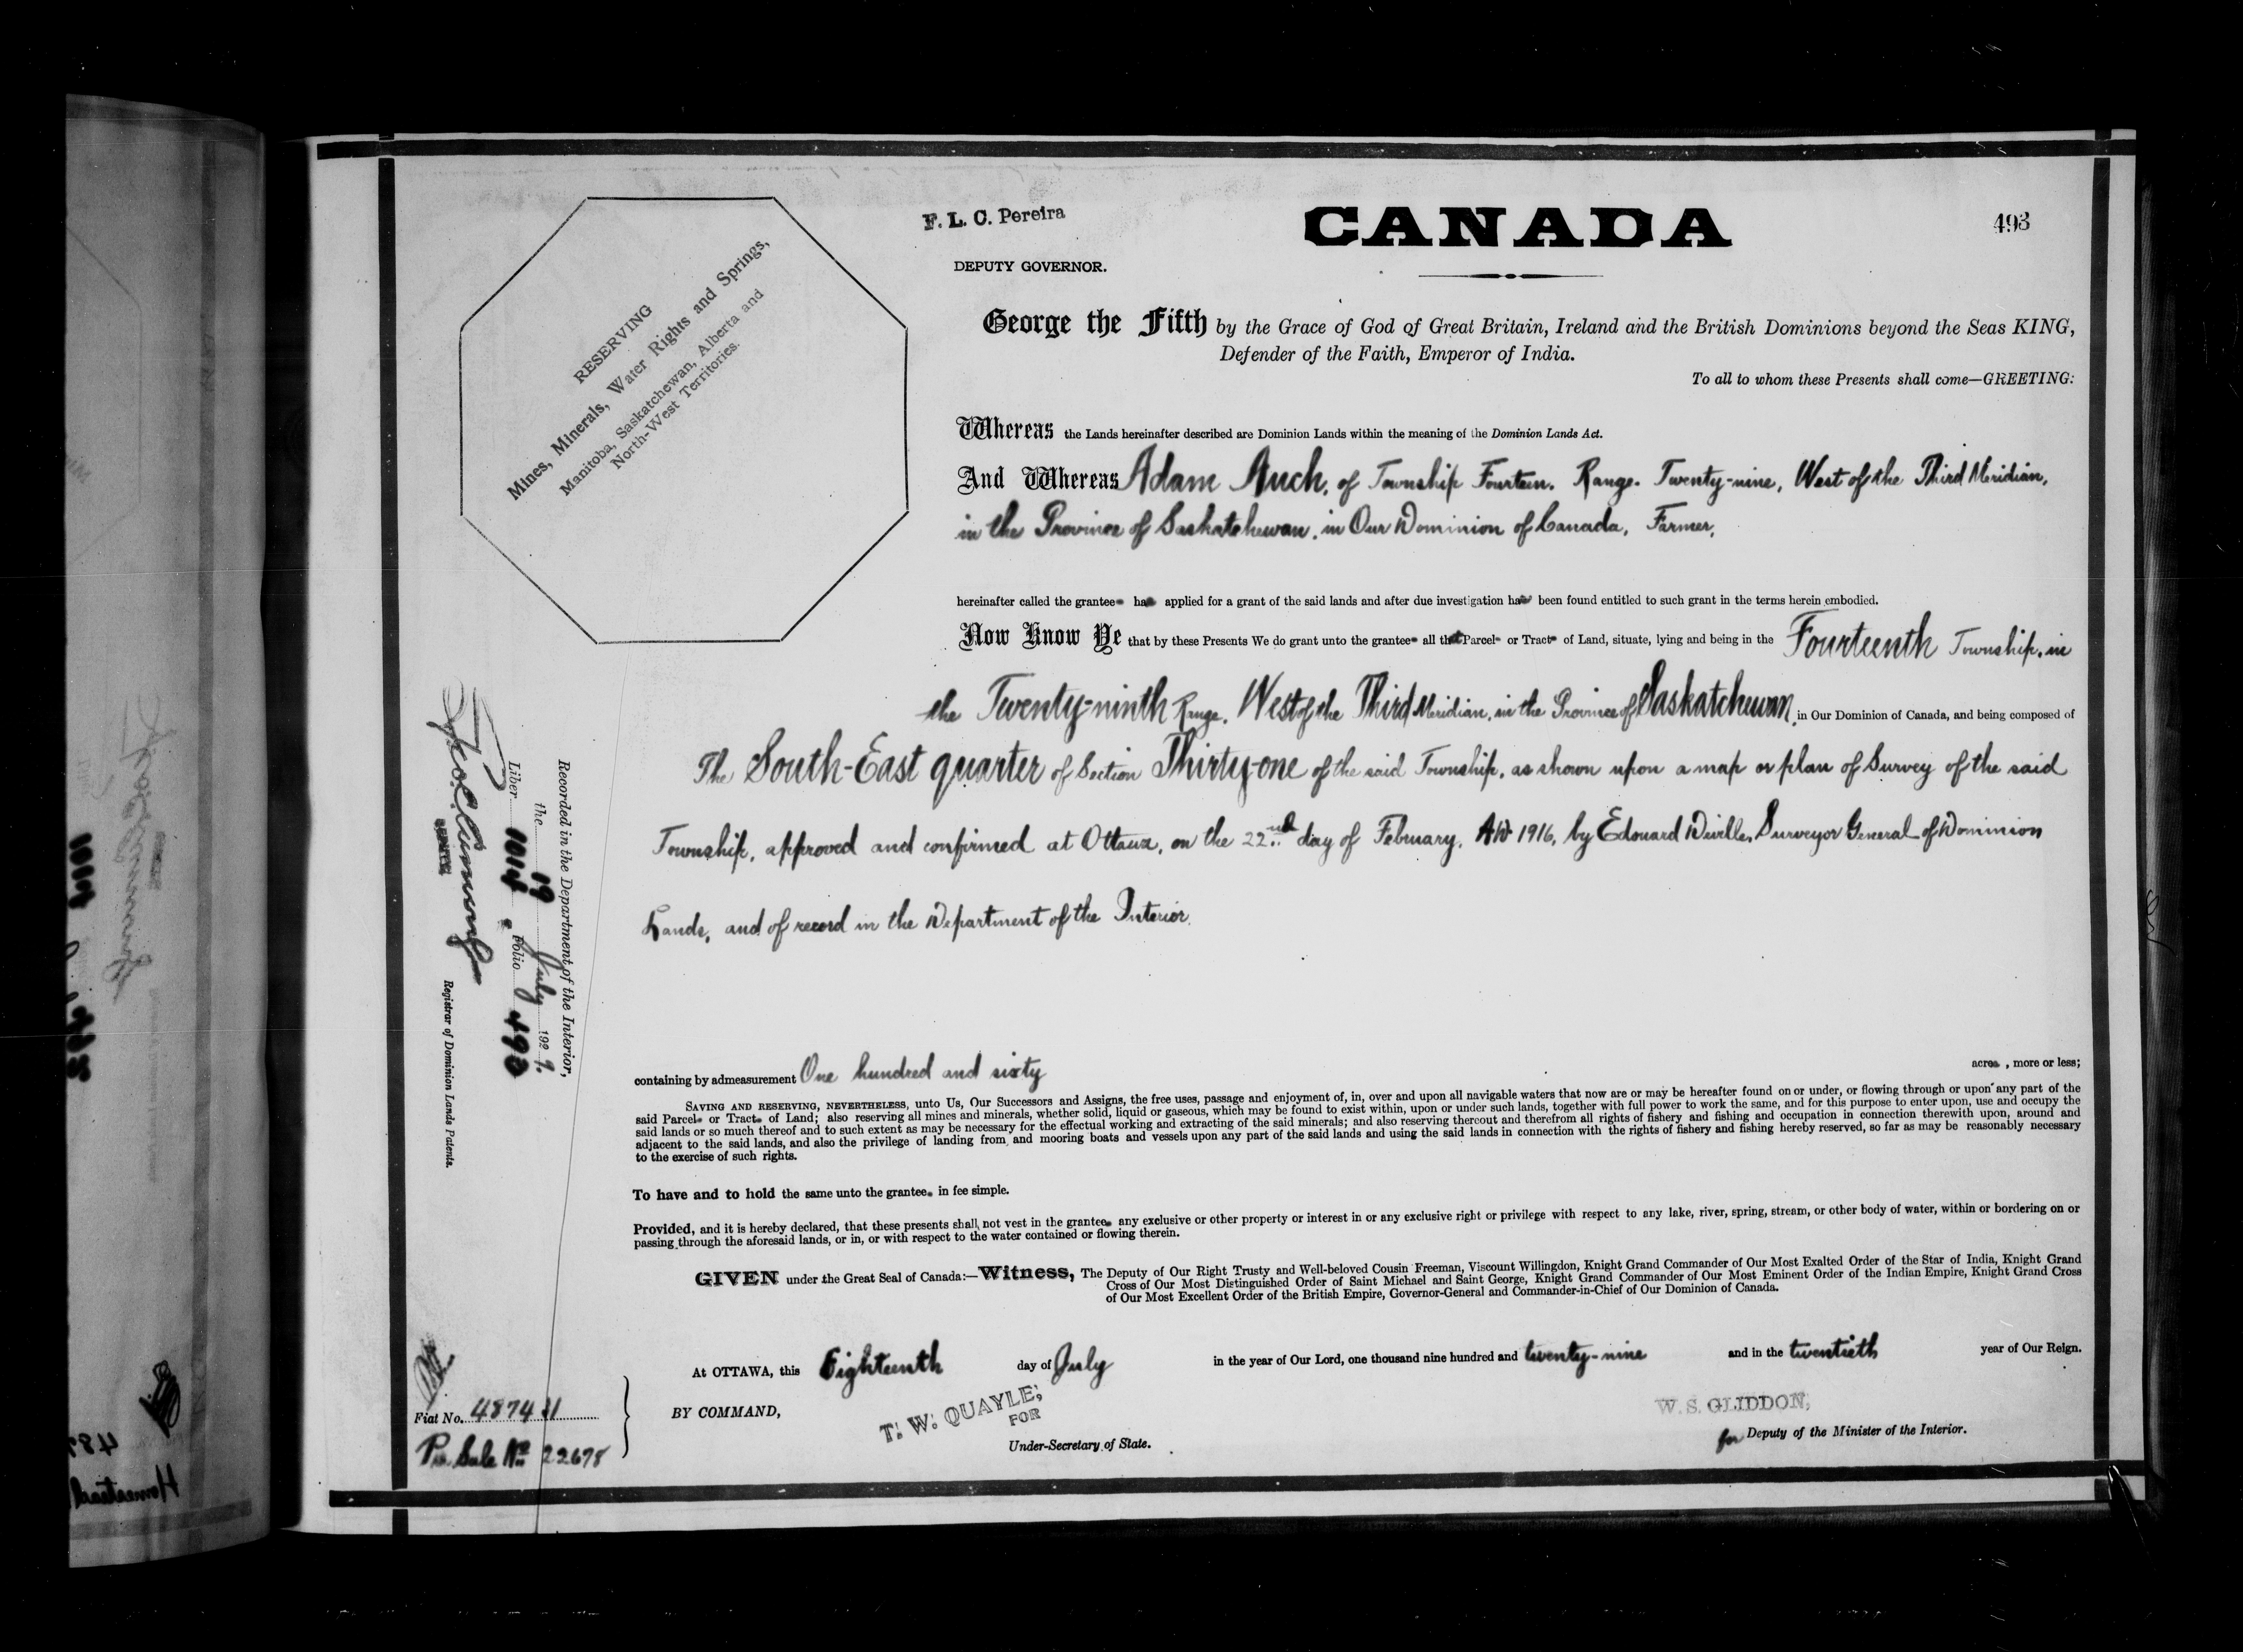 F. L. C. Pereira
DEPUTY GOVERNOR.
CANADA
493
RESERVING
Mines, Minerals, Water Rights and Springs,
Manitoba, Saskatchewan, Alberta and
North-West Territories.
George the Fifth by the Grace of God of Great Britain, Ireland and the British Dominions beyond the Seas KING,
Defender of the Faith, Emperor of India.
To all to whom these Presents shall come—GREETING:
Whereas the Lands hereinafter described are Dominion Lands within the meaning of the Dominion Lands Act.
And Whereas Adam Auch, of Township Fourteen, Range Twenty-nine, West of the Third Meridian,
in the Province of Saskatchewan, in Our Dominion of Canada, Farmer,
hereinafter called the grantee has applied for a grant of the said lands and after due investigation has been found entitled to such grant in the terms herein embodied.
Now Know Ye that by these Presents We do grant unto the grantee all that Parcel or Tract of Land, situate, lying and being in the Fourteenth Township, in
the Twenty-ninth Range, West of the Third Meridian, in the Province of Saskatchewan, in Our Dominion of Canada, and being composed of
The South-East quarter of Section Thirty-one of the said Township, as shown upon a map or plan of Survey of the said
Township, approved and confirmed at Ottawa, on the 22nd day of February, A.D. 1916, by Edouard Deville, Surveyor General of Dominion
Lands, and of record in the Department of the Interior.
containing by admeasurement One hundred and sixty acres, more or less;
SAVING AND RESERVING, NEVERTHELESS, unto Us, Our Successors and Assigns, the free uses, passage and enjoyment of, in, over and upon all navigable waters that now are or may be hereafter found on or under, or flowing through or upon any part of the
said Parcel or Tract of Land; also reserving all mines and minerals, whether solid, liquid or gaseous, which may be found to exist within, upon or under such lands, together with full power to work the same, and for this purpose to enter upon, use and occupy the
said lands or so much thereof and to such extent as may be necessary for the effectual working and extracting of the said minerals; and also reserving thereout and therefrom all rights of fishery and fishing and occupation in connection therewith upon, around and
adjacent to the said lands, and also the privilege of landing from and mooring boats and vessels upon any part of the said lands and using the said lands in connection with the rights of fishery and fishing hereby reserved, so far as may be reasonably necessary
to the exercise of such rights.
To have and to hold the same unto the grantee in fee simple.
Provided, and it is hereby declared, that these presents shall not vest in the grantee any exclusive or other property or interest in or any exclusive right or privilege with respect to any lake, river, spring, stream, or other body of water, within or bordering on or
passing through the aforesaid lands, or in, or with respect to the water contained or flowing therein.
GIVEN under the Great Seal of Canada:—Witness, The Deputy of Our Right Trusty and Well-beloved Cousin Freeman, Viscount Willingdon, Knight Grand Commander of Our Most Exalted Order of the Star of India, Knight Grand
Cross of Our Most Distinguished Order of Saint Michael and Saint George, Knight Grand Commander of Our Most Eminent Order of the Indian Empire, Knight Grand Cross
of Our Most Excellent Order of the British Empire, Governor-General and Commander-in-Chief of Our Dominion of Canada.
At OTTAWA, this Eighteenth day of July in the year of Our Lord, one thousand nine hundred and twenty-nine and in the twentieth year of Our Reign.
BY COMMAND,
T. W. QUAYLE,
FOR
Under-Secretary of State.
W. S. GLIDDON,
for Deputy of the Minister of the Interior.
Recorded in the Department of the Interior,
the 19 July 1929.
Liber 1014 Folio 493
DEPUTY
Registrar of Dominion Lands Patents.
Fiat No. 487431
Sale No. 22678
Homestead